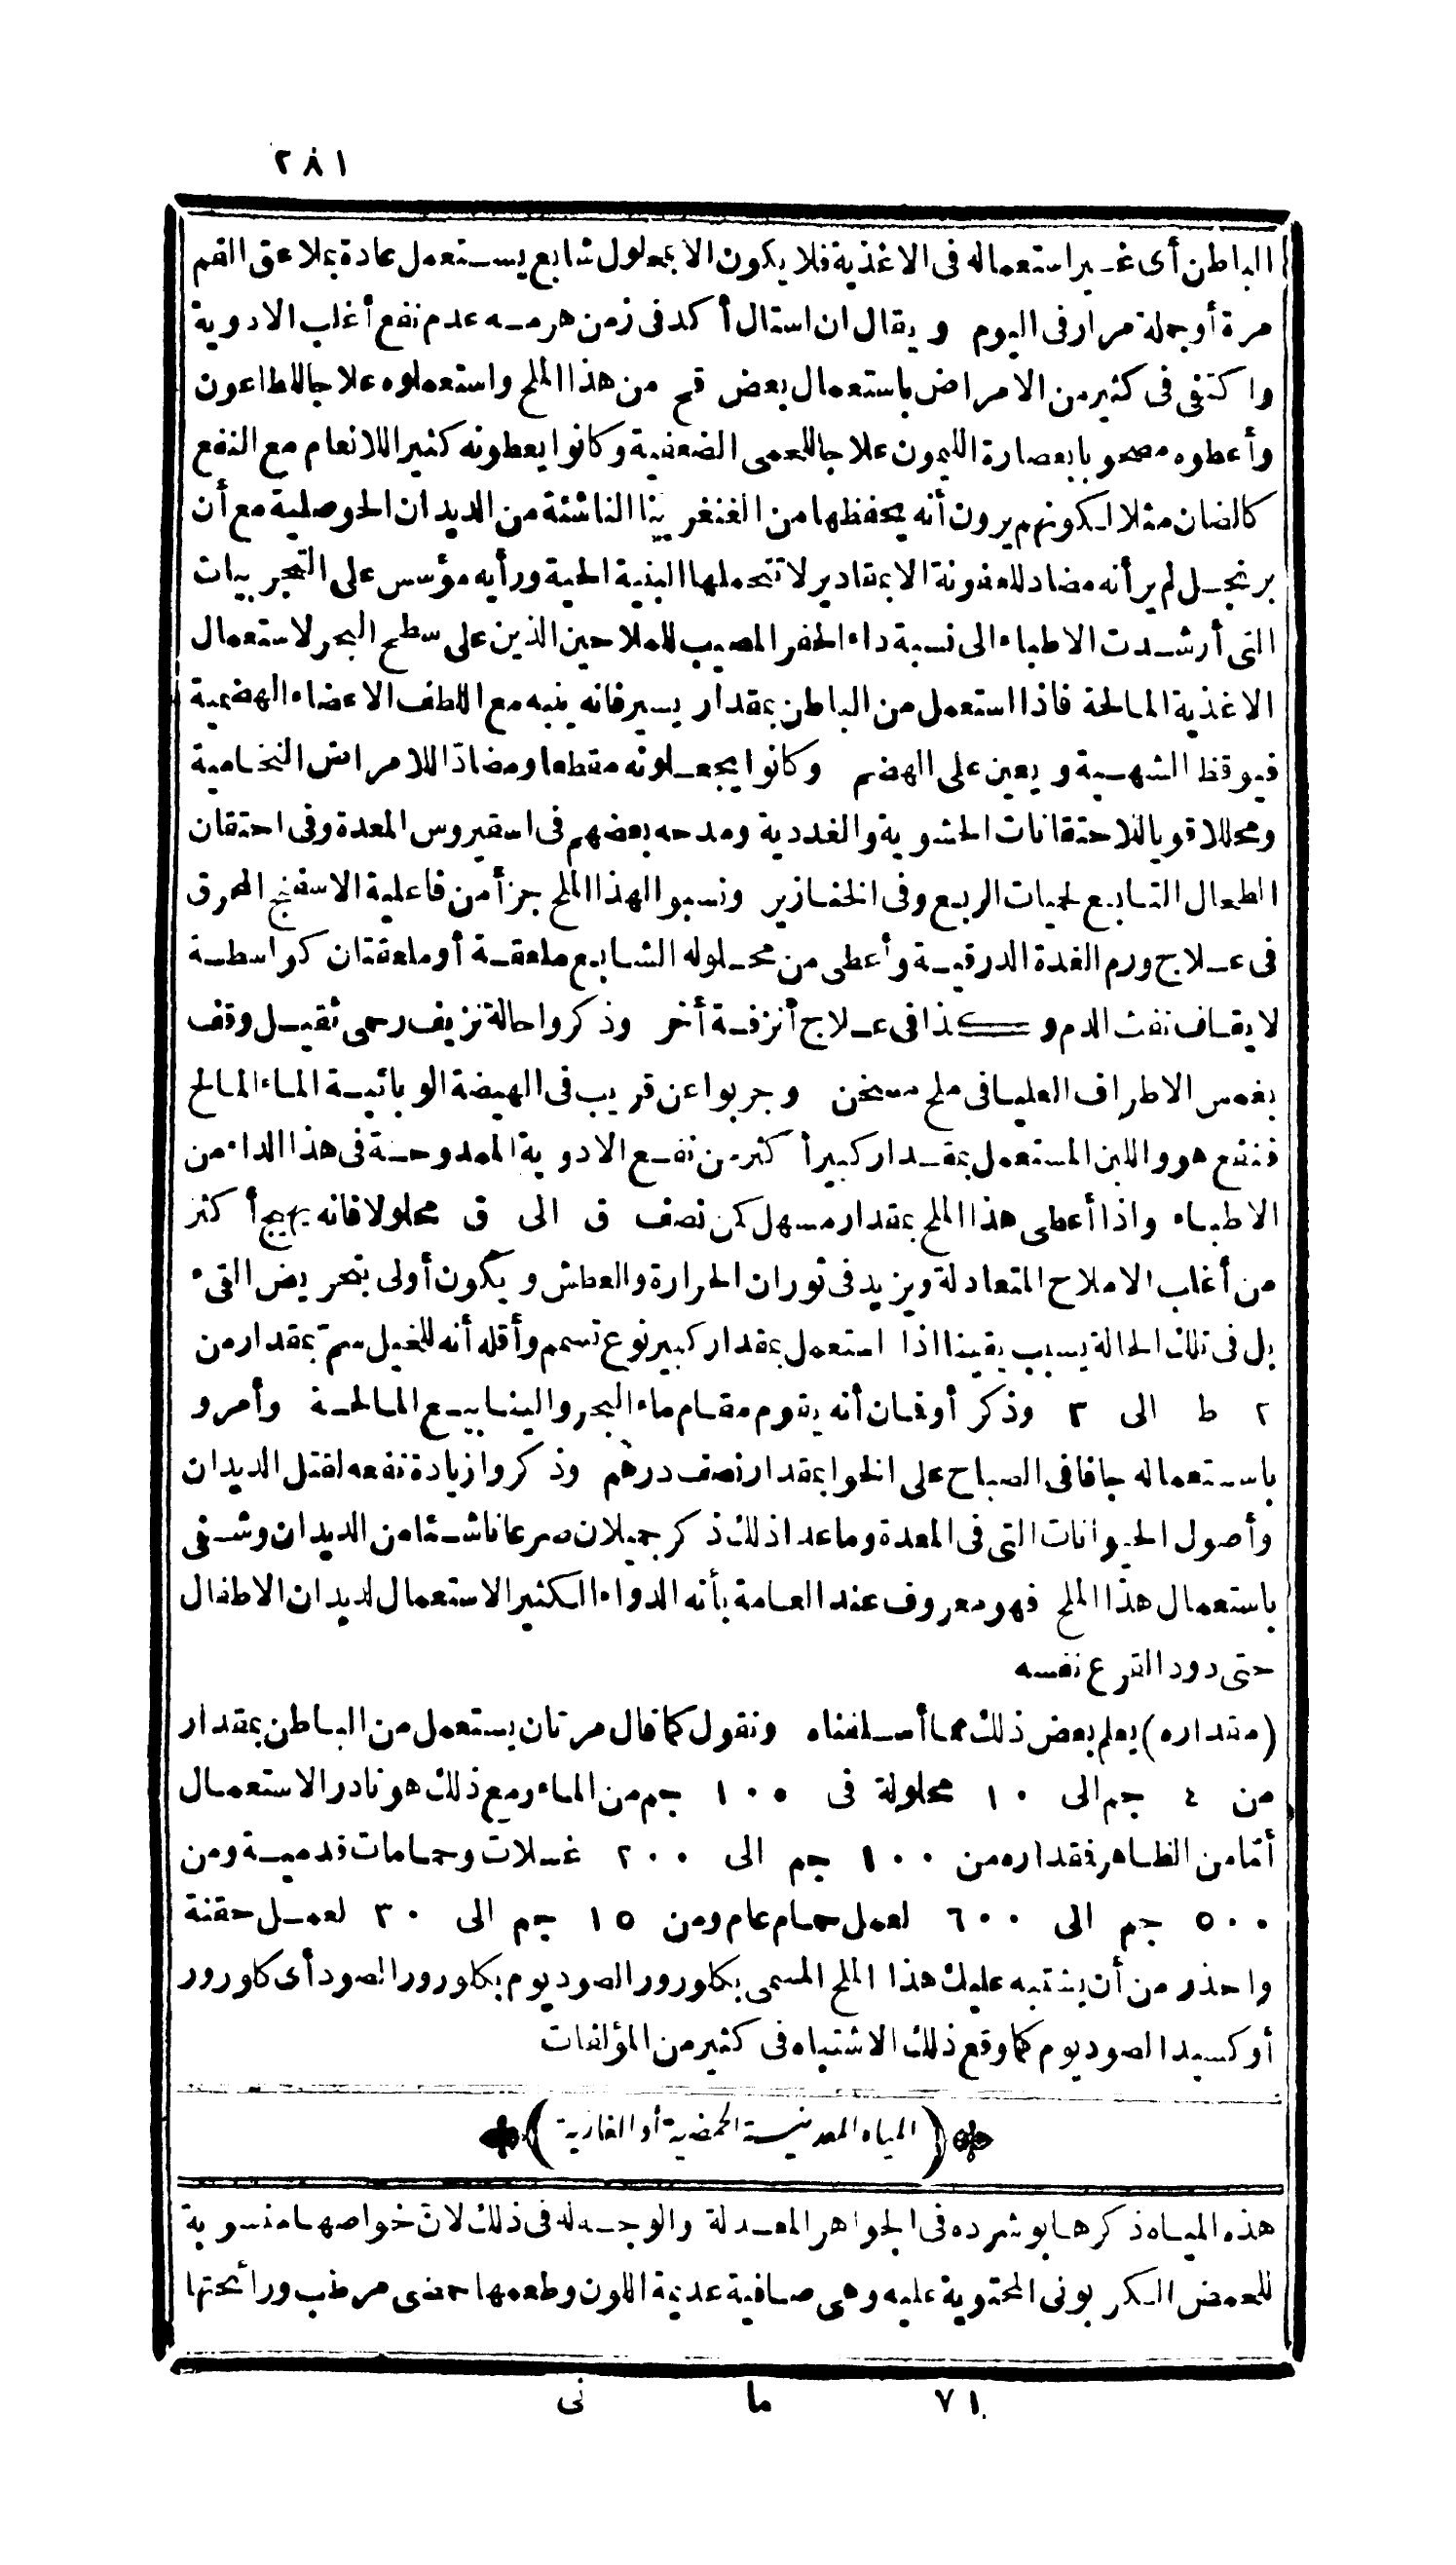 ٢٨١
الباطن أى غير استعماله فى الاغذية فلا يكون الا بمحلول شابع يستعمل عادة بملاعق الفم
مرة أو جملة مرار فى اليوم ويقال ان استال أكد فى زمن هرمه عدم نفع أغلب الادوية
واكتفى فى كثير من الامراض باستعمال بعض قم من هذا الملح واستعملوه علاجا للطاعون
وأعطوه مصحوبا بعصارة الليمون علاجا للحمى الضعفية وكانوا يعطونه كثيرا للانعام مع النفع
كالضان مثلا لكونهم يرون أنه يحفظها من الغنغرينا الناشئة من الديدان الحوصلية مع أن
برنجل لم ير أنه مضاد للعفونة الا بمقادير لا تتحملها البنية الحية ورأيه مؤسس على التجربيات
التى أرشدت الاطباء الى نسبة داء الحفر المصيب للملاحين الذين على سطح البحر لاستعمال
الاغذية المالحة فاذا استعمل من الباطن بمقدار يسير فانه ينبه مع اللطف الاعضاء الهضمية
فيوقظ الشهية ويعين على الهضم وكانوا يجعلونه مقطعا ومضادّا للامراض النخامية
ومحللا قويا للاحتقانات الحشوية والغددية ومدحه بعضهم فى اسقيروس المعدة وفى احتقان
الطحال التابع لحميات الربع وفى الخنازير ونسبوا لهذا الملح جزأ من فاعلية الاسفنج المحرق
فى علاج ورم الغدة الدرقية وأعطى من محلوله الشابع ملعقة أو ملعقتان كواسطة
لايقاف نفث الدم وكذا فى علاج أنزفة أخر وذكروا حالة نزيف رحمى ثقيل وقف
بغمس الاطراف العليا فى ملح مسخن وجربوا عن قريب فى الهيضة الوبائية الماء المالح
فنفع هو واللبن المستعمل بمقدار كبير أكثر من نفع الادوية الممدوحة فى هذا الداء من
الاطباء واذا أعطى هذا الملح بمقدار مسهل كمن نصف ق الى ق محلولا فانه يهيج أكثر
من أغلب الاملاح المتعادلة ويزيد فى ثوران الحرارة والعطش ويكون أولى بتحريض القىء
بل فى تلك الحالة يسبب يقينا اذا استعمل بمقدار كبير نوع تسمم وأقله أنه للخيل سمّ بمقدار من
٢ ط الى ٣ وذكر أوفان أنه يقوم مقام ماء البحر والينابيع المالحة وأمرو
باستعماله جافا فى الصباح على الخوا بمقدار نصف درهم وذكروا زيادة نفعه لقتل الديدان
وأصول الحيوانات التى فى المعدة وما عدا ذلك ذكر جميلان صرعا ناشئا من الديدان وشفى
باستعمال هذا الملح فهو معروف عند العامة بأنه الدواء الكثير الاستعمال لديدان الاطفال
حتى دود القرع نفسه
(مقداره) يعلم بعض ذلك مما أسلفناه ونقول كما قال مرتان يستعمل من الباطن بمقدار
من ٤ جم الى ١٠ محلولة فى ١٠٠ جم من الماء ومع ذلك هو نادر الاستعمال
أمّا من الظاهر فقداره من ١٠٠ جم الى ٢٠٠ غسلات وحمامات قدمية ومن
٥٠٠ جم الى ٦٠٠ لعمل حمام عام ومن ١٥ جم الى ٣٠ لعمل حقنة
واحذر من أن يشتبه عليك هذا الملح المسمى بكلورور الصوديوم بكلورور الصود أى كلورور
أوكسيد الصوديوم كما وقع ذلك الاشتباه فى كثير من المؤلفات
(المياه المعدنية الحمضية أو الغازية)
هذه المياه ذكرها بوشرده فى الجواهر المعدلة والوجه له فى ذلك لانّ خواصها منسوبة
للحمض الكربونى المحتوية عليه وهى صافية عديمة اللون وطعمها حمضى مرطب ورائحتها
٧١ ما نى